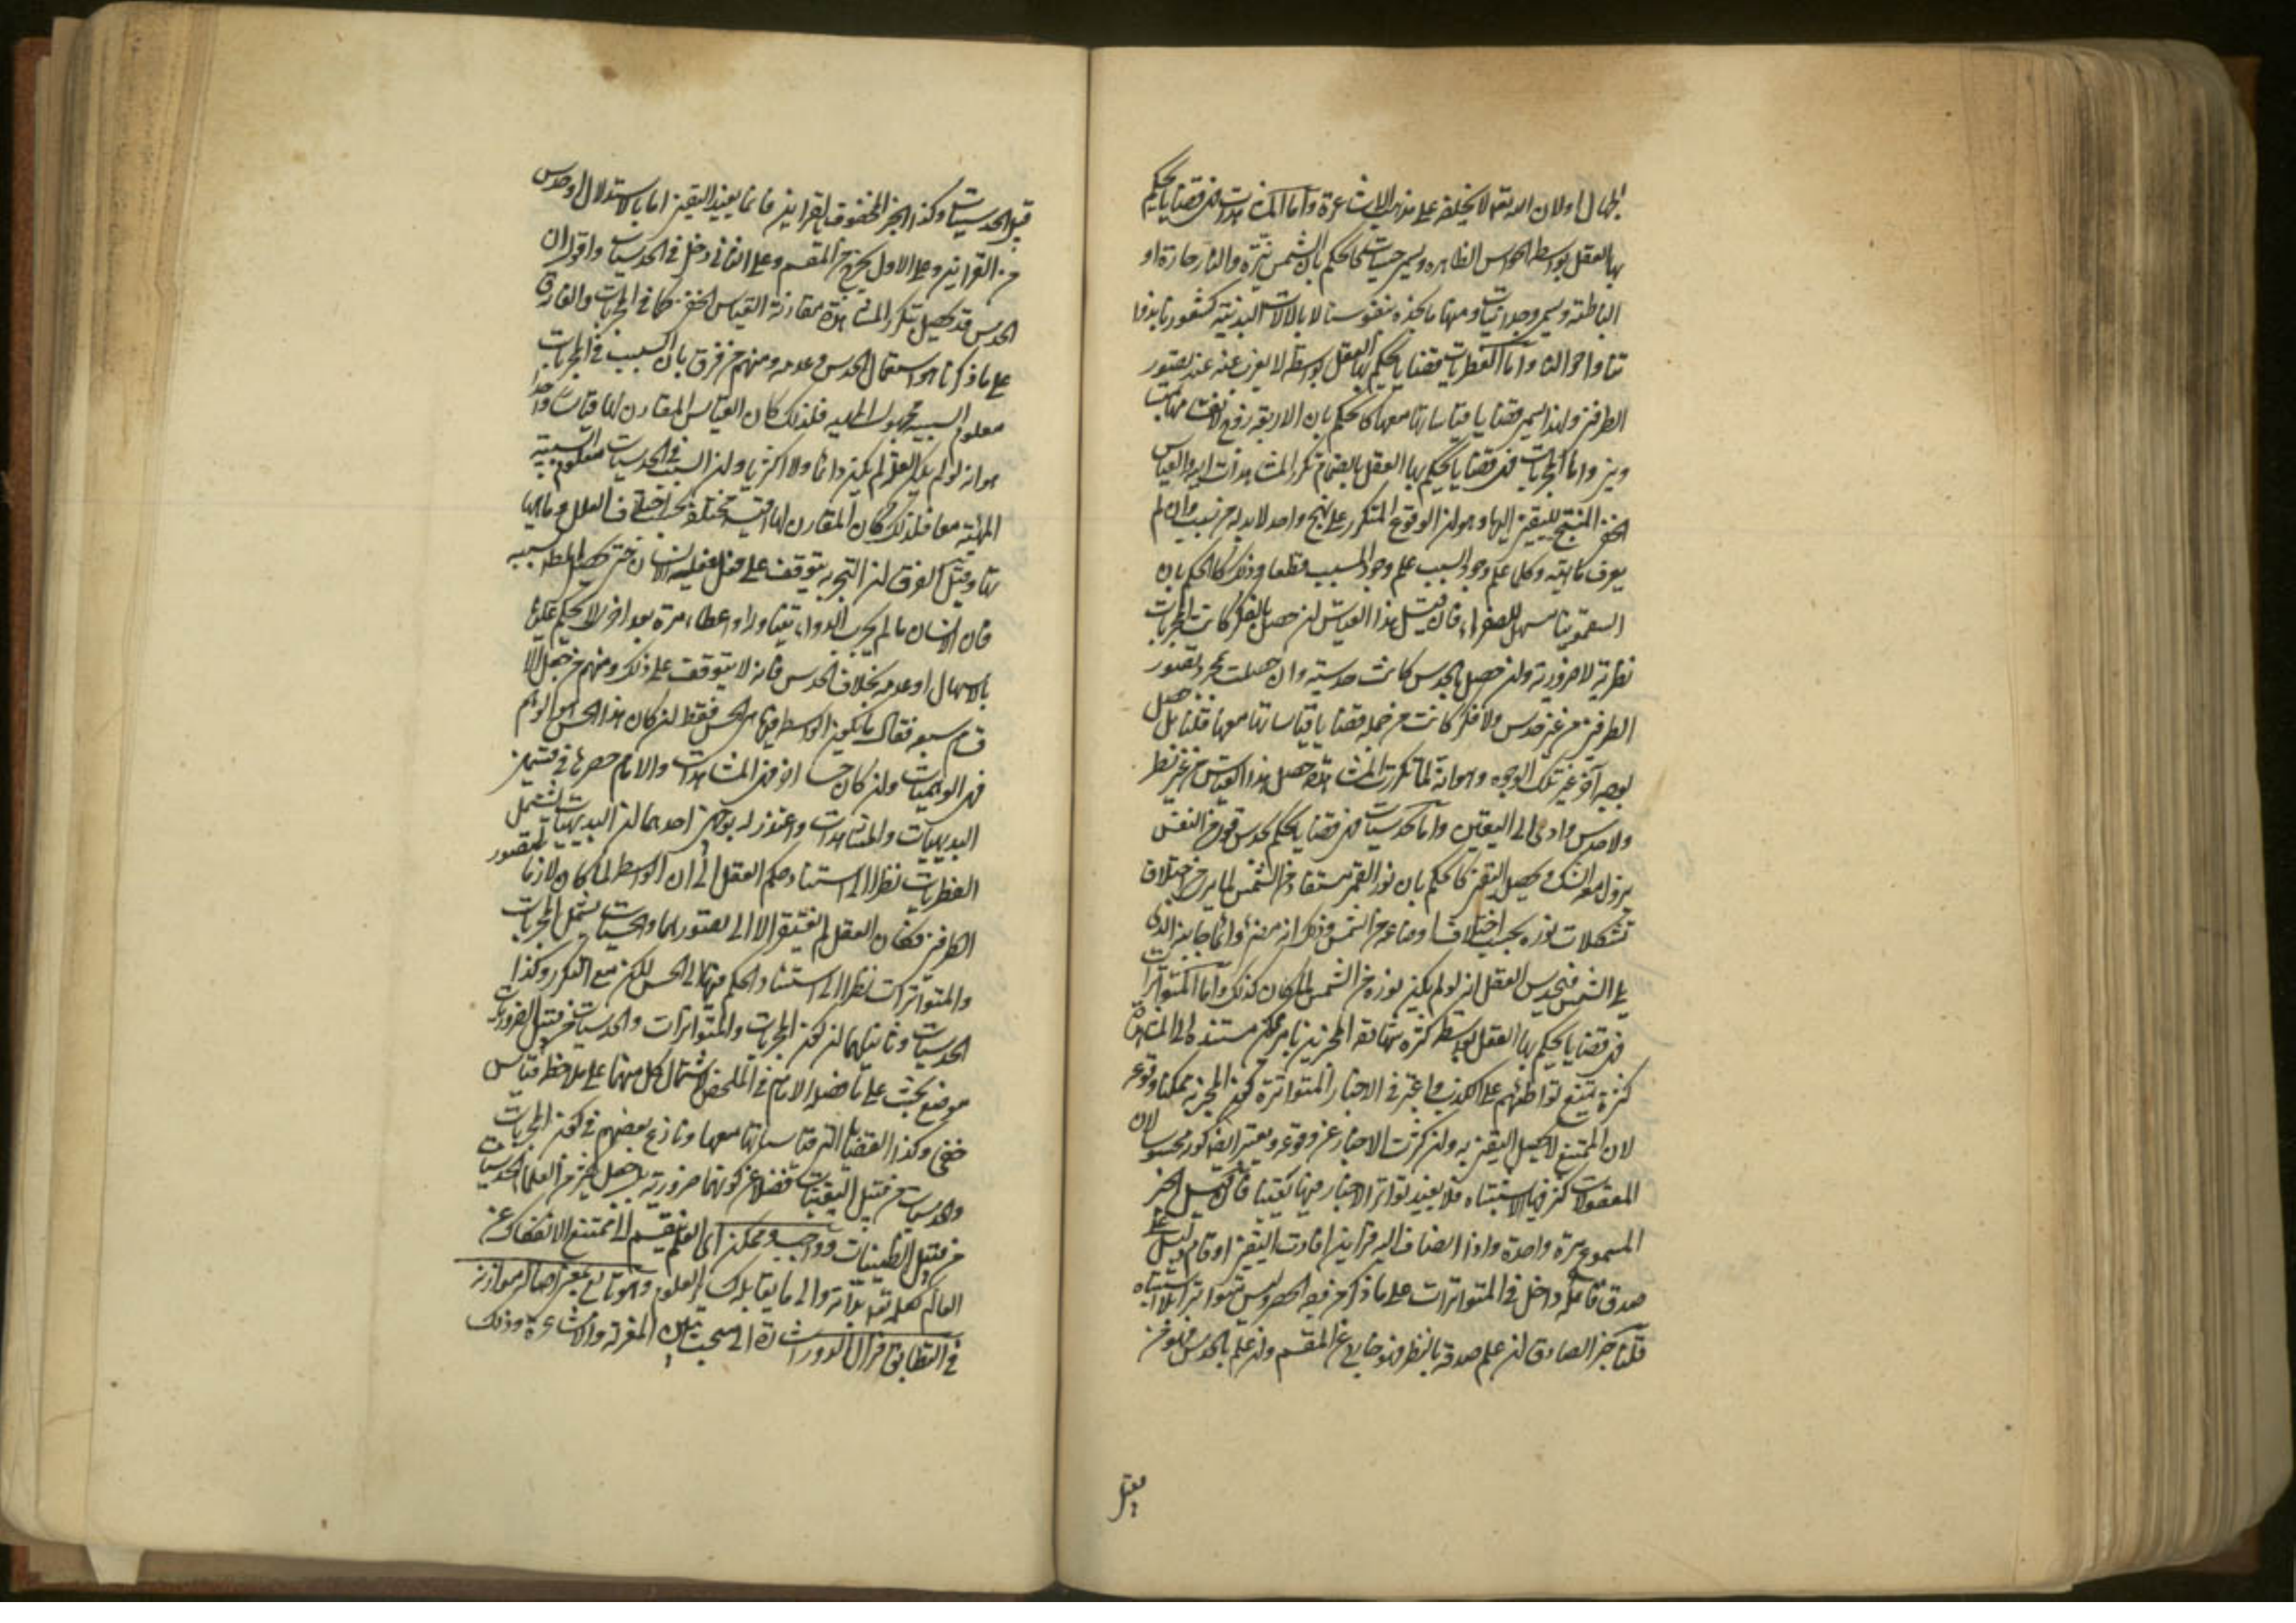 بها العقل بواسطة الحواس الظاهرة ويسمى حسيات كالحكم بان الشمس نيّرة والنار حارة او
الباطنة ويسمى وجدانيات ومنها ما نجده بنفوسنا لا بالالات البدنية كشعورنا بذوا
تنا واحوالنا واما الفطريات فقضايا يحكم بها العقل بواسطة لا يعزب عنه عند تصور
الطرفين ولهذا يسمى قضايا قياساتها معها كالحكم بان الاربعة زوج
واما المجربات فهى قضايا يحكم بها العقل بانضمام تكرر المشاهدات اليه والقياس
الخفى المنتج لليقين اليها وهو ان الوقوع المتكرر على نهج واحد لا بد له من سبب وان لم
يعرف ماهيته وكلما علم وجود السبب علم وجود المسبب قطعا وذلك كالحكم بان
السقمونيا مسهل للصفراء فان قيل هذا القياس ان حصل بالفكر كانت المجربات
نظرية لا ضرورية وان حصل بالحدس كانت حدسية وان حصلت بمجرد تصور
الطرفين من غير حدس ولا فكر كانت من جملة قضايا قياساتها معها قلنا بل حصل
بوجه آخر غير تلك الوجوه وهو انه لما تكررت المشاهدة حصل هذا القياس من غير نظر
ولا حدس وادى الى اليقين واما الحدسيات فهى قضايا يحكم بحدس قوى من النفس
يزول معه الشك ويحصل اليقين كالحكم بان نور القمر مستفاد من الشمس لما يرى من اختلاف
تشكلات نوره بحسب اختلاف اوضاعه من الشمس وذلك انه يضىء دائما جانبه الذى
يلى الشمس فيحدس العقل انه لو لم يكن نوره من الشمس لما كان كذلك واما المتواترات
فهى قضايا يحكم بها العقل بواسطة كثرة شهادة المخبرين بامر ممكن مستند الى المشاهدة
كثرة يمتنع تواطئهم على الكذب واعتبر فى الاخبار المتواترة كون المخبر به ممكنا وقوعه
لان الممتنع لا يحصل اليقين به وان كثرت الاخبار عن وقوعه ويعتبر ايضا كونه محسوسا لان
المعقولات يكثر فيها الاشتباه فلا يفيد تواتر الاخبار فيها يقينا فان قيل الخبر
المسموع مرة واحدة واذا انضاف اليه قراين افادت اليقين او قام دليل على
صدق قائله داخل فى المتواترات على ما ذكر من الحصر وليس بمتواتر بلا اشتباه
قلنا خبر الصادق ان علم صدقه بالنظر فهو خارج عن المقسم وان علم بالحدس فهو من
قبيل
قبيل الحدسيات وكذا الخبر المحفوف بالقراين فانما يفيد اليقين اما بالاستدلال او حدس
من القراين وعلى الاول يخرج من المقسم وعلى الثانى دخل فى الحدسيات واقول ان
الحدس قد يحصل بتكرر المشاهدة مقارنة القياس الخفى كما فى المجربات والفارق
على ما ذكرنا هو استعمال الحدس وعدمه ومنهم من فرق بان السبب فى المجربات
معلوم السببية مجهول الماهية فلذلك كان القياس المقارن لها قياسا واحدا
هو انه لو لم يكن لعلة لم يكن دائما ولا اكثريا وان السبب فى الحدسيات معلوم السببية
والماهية معا فلذلك كان المقارن لها اقيسة مختلفة بحسب اختلاف العلل فى ماهيا
تها وقيل الفرق ان التجربة يتوقف على فعل يفعله الانسان حتى يحصل المطلوب بسببه
فان الانسان ما لم يجرب الدواء بتناوله او اعطائه مرة بعد اخرى لا يحكم عليه
بالاسهال او عدمه بخلاف الحدس فانه لا يتوقف على ذلك ومنهم من جعل الا
قسام سبعة فقال ما يكون الواسطة فيها هى الحس فقط ان كان هذا الحس هو الوهم
فهى الوهميات وان كان حسا اخر فهى المشاهدات والامام حصرها فى قسمين
البديهيات والمشاهدات واعتذر له بوجهين احدهما ان البديهيات يشمل
الفطريات نظرا الى استناد حكم العقل الى ان الواسطة لما كان لازما لتصور
الطرفين فكان العقل لم يفتقر الا الى تصورهما والحسيات يشمل المجربات
والمتواترات نظرا الى استناد الحكم فيها الى الحس لكن مع التكرر وكذا
الحدسيات وثانيهما ان كون المجربات والمتواترات والحدسيات من قبيل الضروريات
موضع بحث على ما فصله الامام فى الملخص لاشتمال كل منها على ملاحظة قياس
خفى وكذا القضايا التى قياساتها معها ونازع بعضهم فى كون المجربات
والحدسيات من قبيل اليقينيات فضلا عن كونها ضرورية بل جعل كثير من العلماء الحدسيات
من قبيل الظنيات وواجب وممكن اى العلم ينقسم الى ممتنع الانفكاك عن
العالم كعلمه تعالى بذاته والى ما يقابله من العلوم وهو تابع بمعنى اصالة موازنه
فى التطابق فزال الدور اشارة الى بحث بين المعتزلة والاشاعرة وذلك